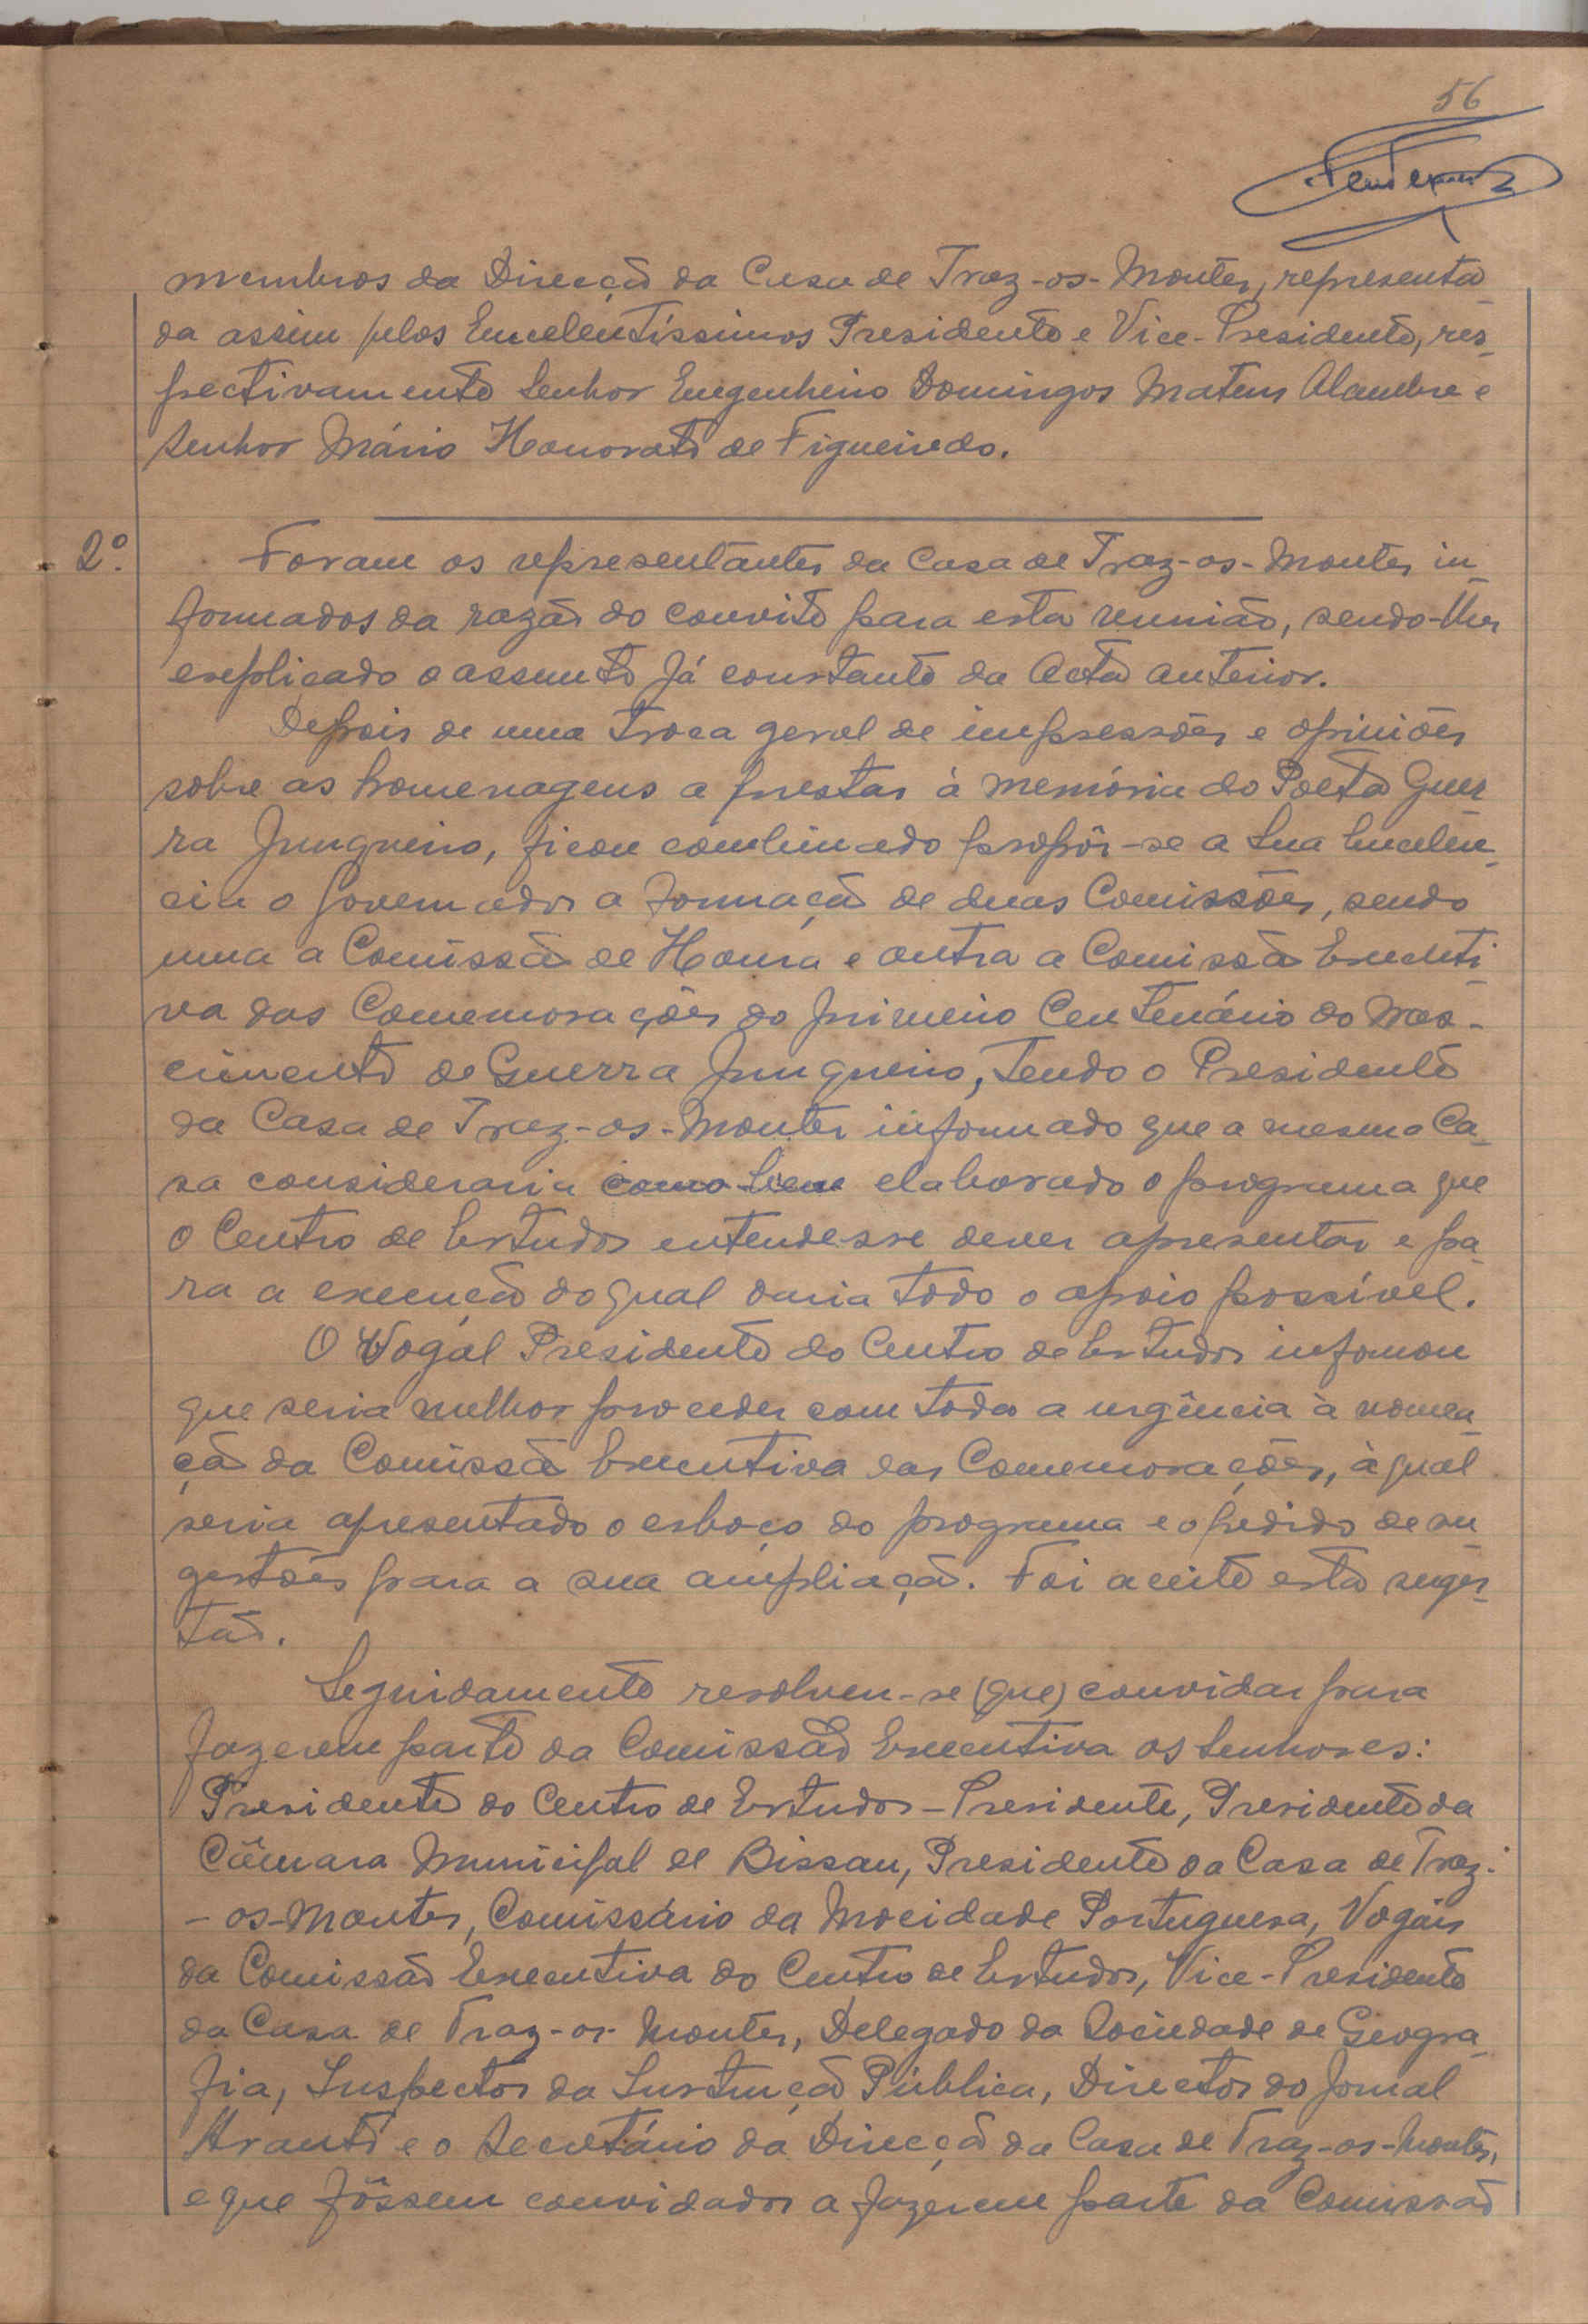 56
membros da Direcção da Casa de Traz-os-Montes, representa-
da assim pelos Excelentíssimos Presidente e Vice-Presidente, res-
pectivamente Senhor Engenheiro Domingos Mateus Alambre e
Senhor Mário Honorato de Figueiredo.
2º. Foram os representantes da Casa de Traz-os-Montes in-
formados da razão do convite para esta reunião, sendo-lhes
explicado o assunto já constante da Acta anterior.
Depois de uma troca geral de impressões e opiniões
sobre as homenagens a prestar à memória do Poeta Guer-
ra Junqueiro, ficou combinado propôr-se a Sua Excelên-
cia o Governador a formação de duas Comissões, sendo
uma a Comissão de Honra e outra a Comissão Executi-
va das Comemorações do primeiro Centenário do Nas-
cimento de Guerra Junqueiro, tendo o Presidente
da Casa de Traz-os-Montes informado que a mesma Ca-
sa consideraria como bem elaborado o programa que
o Centro de Estudos entendesse dever apresentar e pa-
ra a execução do qual daria todo o apoio possível.
O Vogal Presidente do Centro de Estudos informou
que seria melhor proceder com toda a urgência à nomea-
ção da Comissão Executiva das Comemorações, à qual
seria apresentado o esboço do programa e o pedido de su-
gestões para a sua ampliação. Foi aceite esta suges-
tão.
Seguidamente resolveu-se (que) convidar para
fazerem parte da Comissão Executiva os Senhores:
Presidente do Centro de Estudos - Presidente, Presidente da
Câmara Municipal de Bissau, Presidente da Casa de Traz-
-os-Montes, Comissário da Mocidade Portuguesa, Vogais
da Comissão Executiva do Centro de Estudos, Vice-Presidente
da Casa de Traz-os-Montes, Delegado da Sociedade de Geogra-
fia, Inspector da Instrução Pública, Director do Jornal
Arauto e o Secretário da Direcção da Casa de Traz-os-Montes,
e que fôssem convidados a fazerem parte da Comissão